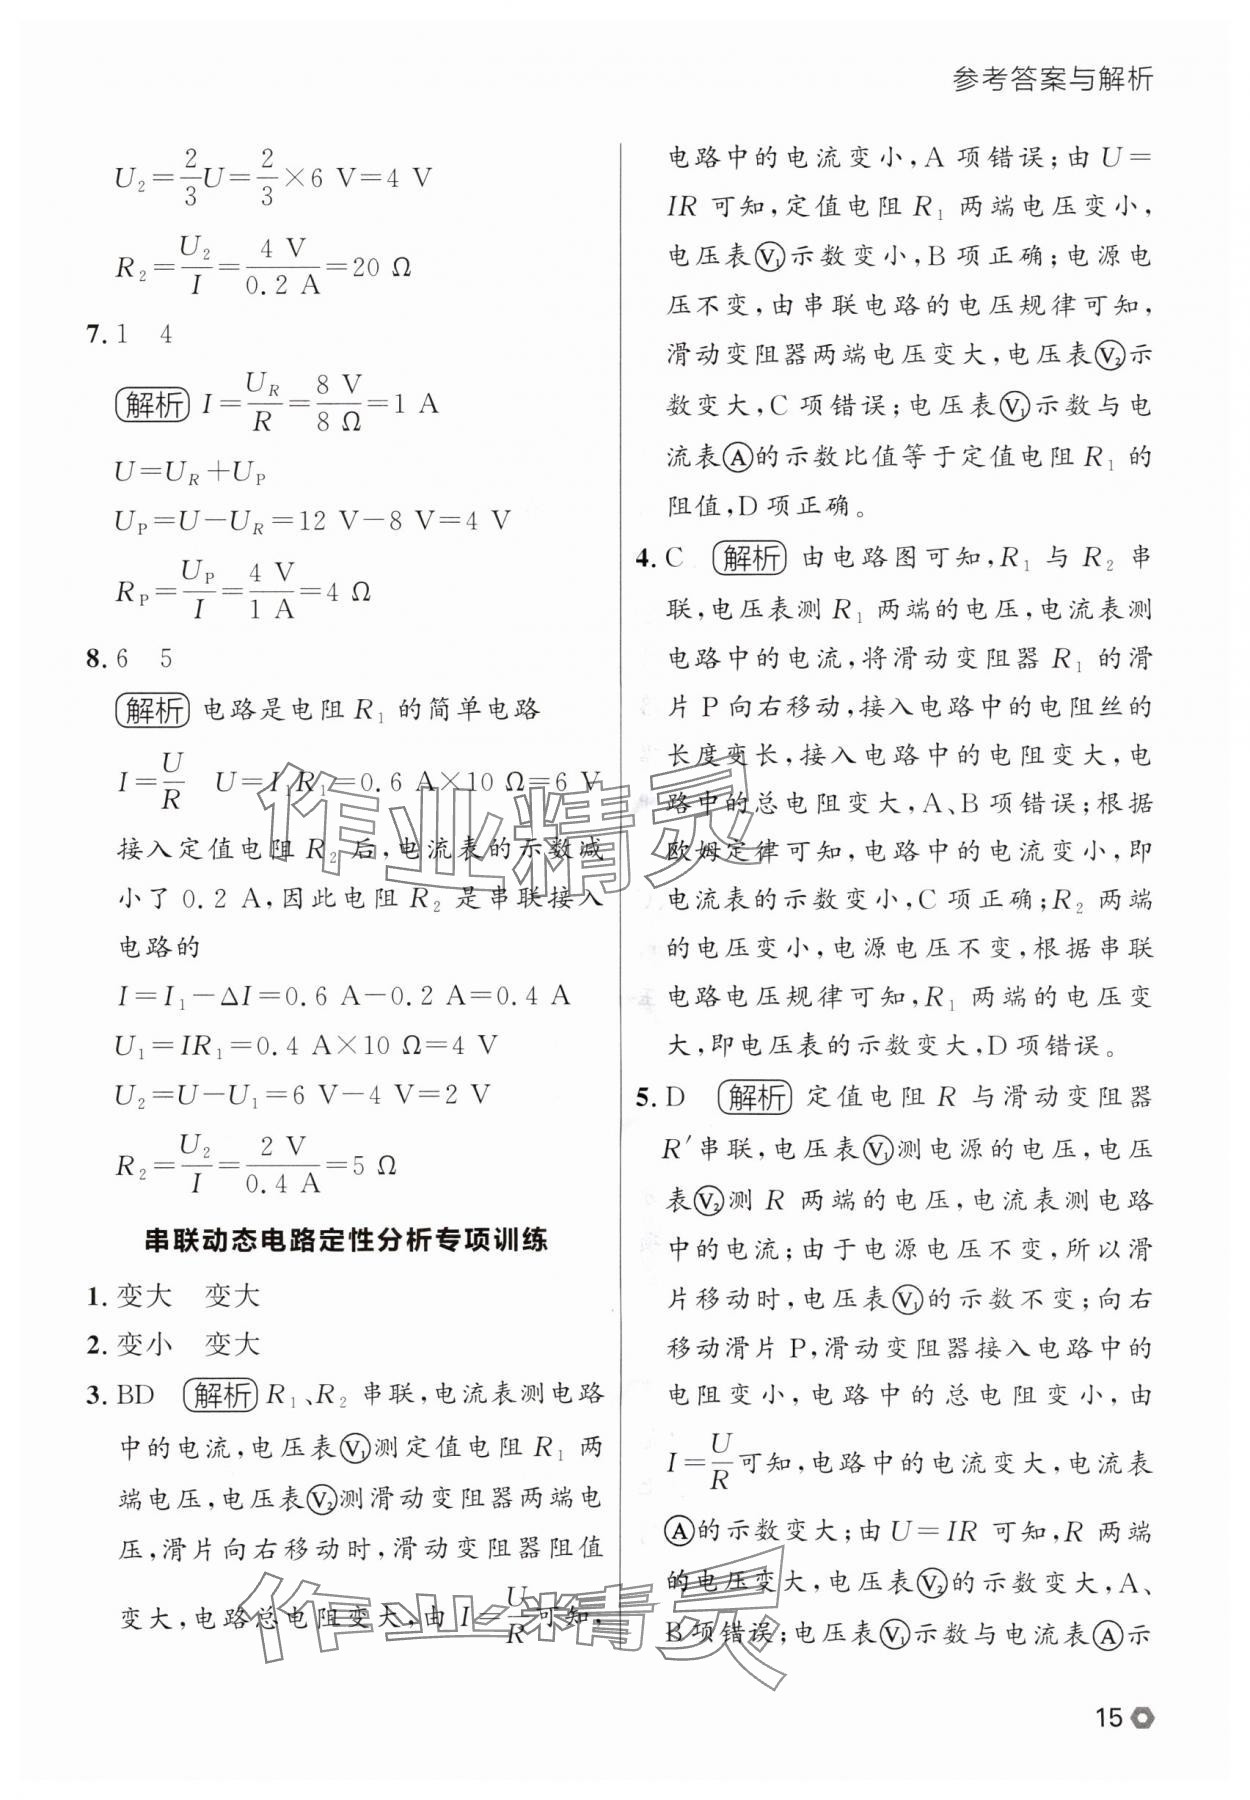 参考答案与解析
U₂=2/3U=2/3×6 V=4 V
R₂=U₂/I=4 V/0.2 A=20 Ω
7. 1 4
解析 I=U_R/R=8 V/8 Ω=1 A
U=U_R+U_P
U_P=U-U_R=12 V-8 V=4 V
R_P=U_P/I=4 V/1 A=4 Ω
8. 6 5
解析 电路是电阻 R₁ 的简单电路
I=U/R U=I₁R₁=0.6 A×10 Ω=6 V
接入定值电阻 R₂ 后,电流表的示数减
小了 0.2 A,因此电阻 R₂ 是串联接入
电路的
I=I₁-ΔI=0.6 A-0.2 A=0.4 A
U₁=IR₁=0.4 A×10 Ω=4 V
U₂=U-U₁=6 V-4 V=2 V
R₂=U₂/I=2 V/0.4 A=5 Ω
串联动态电路定性分析专项训练
1. 变大 变大
2. 变小 变大
3. BD 解析 R₁、R₂ 串联,电流表测电路
中的电流,电压表Ⓥ₁测定值电阻 R₁ 两
端电压,电压表Ⓥ₂测滑动变阻器两端电
压,滑片向右移动时,滑动变阻器阻值
变大,电路总电阻变大,由 I=U/R可知,
电路中的电流变小,A 项错误;由 U=
IR 可知,定值电阻 R₁ 两端电压变小,
电压表Ⓥ₁示数变小,B项正确;电源电
压不变,由串联电路的电压规律可知,
滑动变阻器两端电压变大,电压表Ⓥ₂示
数变大,C 项错误;电压表Ⓥ₁示数与电
流表Ⓐ的示数比值等于定值电阻 R₁ 的
阻值,D 项正确。
4. C 解析 由电路图可知,R₁ 与 R₂ 串
联,电压表测 R₁ 两端的电压,电流表测
电路中的电流,将滑动变阻器 R₁ 的滑
片 P 向右移动,接入电路中的电阻丝的
长度变长,接入电路中的电阻变大,电
路中的总电阻变大,A、B 项错误;根据
欧姆定律可知,电路中的电流变小,即
电流表的示数变小,C 项正确;R₂ 两端
的电压变小,电源电压不变,根据串联
电路电压规律可知,R₁ 两端的电压变
大,即电压表的示数变大,D项错误。
5. D 解析 定值电阻 R 与滑动变阻器
R′串联,电压表Ⓥ₁测电源的电压,电压
表Ⓥ₂测 R 两端的电压,电流表测电路
中的电流;由于电源电压不变,所以滑
片移动时,电压表Ⓥ₁的示数不变;向右
移动滑片 P,滑动变阻器接入电路中的
电阻变小,电路中的总电阻变小,由
I=U/R可知,电路中的电流变大,电流表
Ⓐ的示数变大;由 U=IR 可知,R 两端
的电压变大,电压表Ⓥ₂的示数变大,A、
B 项错误;电压表Ⓥ₁示数与电流表Ⓐ示
15
作业精灵
作业精灵